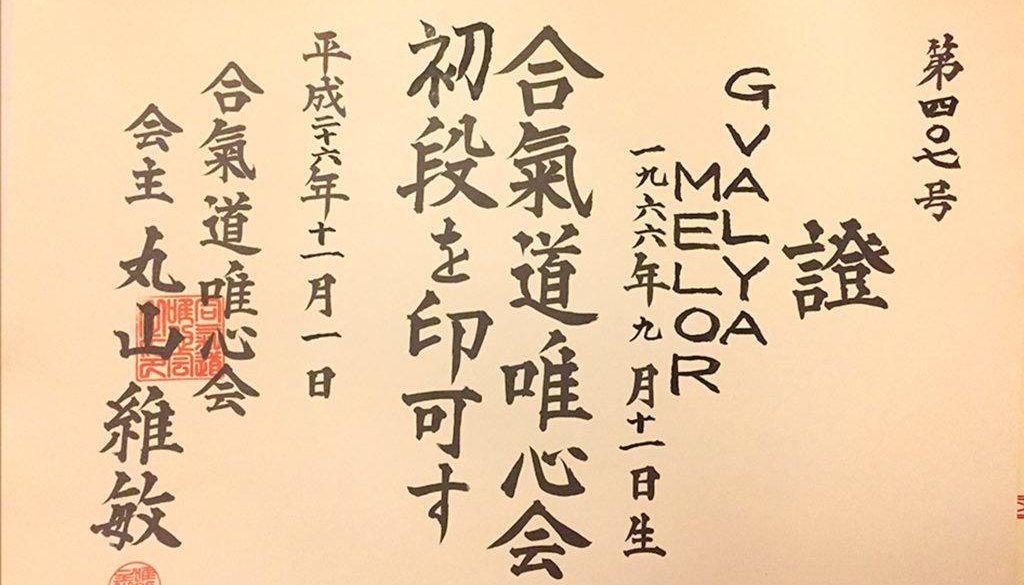 第四〇七号
證
GVALYA
MELOR
一九六六年九月十一日生
合氣道唯心会
初段を印可す
平成二十六年十一月一日
合氣道唯心会
会主 丸山維敏